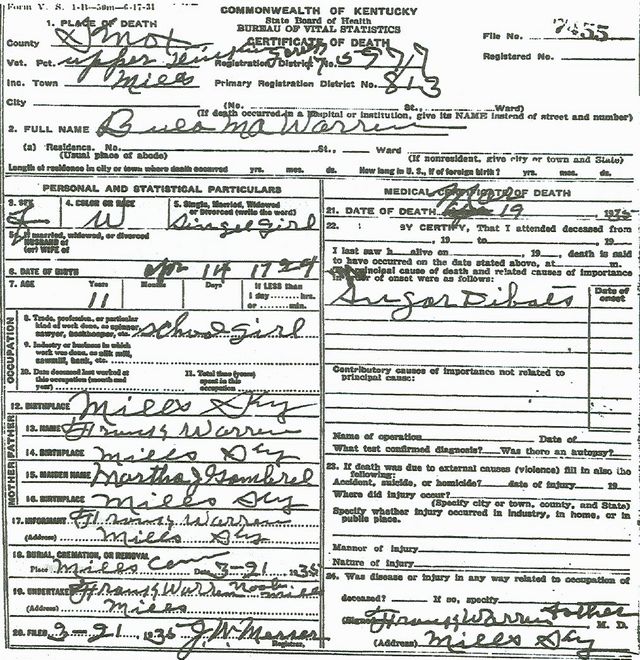 Form V. S. 1-B—50m—6-17-31
COMMONWEALTH OF KENTUCKY
State Board of Health
BUREAU OF VITAL STATISTICS
CERTIFICATE OF DEATH
1. PLACE OF DEATH
File No. 7455
County Knox
Registered No.
Vot. Pct. upper
Registration District No.
Inc. Town Mills
Primary Registration District No. 813
City (No. St., Ward)
(If death occurred in a hospital or institution, give its NAME instead of street and number)
2. FULL NAME Bula Ma Warren
(a) Residence. No. St., Ward
(Usual place of abode) (If nonresident, give city or town and State)
Length of residence in city or town where death occurred yrs. mos. ds. How long in U. S., if of foreign birth? yrs. mos. ds.
PERSONAL AND STATISTICAL PARTICULARS
3. SEX F
4. COLOR OR RACE W
5. Single, Married, Widowed or Divorced (write the word) Singel Girl
5a. If married, widowed, or divorced
HUSBAND of
(or) WIFE of
6. DATE OF BIRTH Apr 14 1924
7. AGE Years 11 Months Days If LESS than
1 day hrs.
or min.
OCCUPATION
8. Trade, profession, or particular
kind of work done, as spinner,
sawyer, bookkeeper, etc. School girl
9. Industry or business in which
work was done, as silk mill,
sawmill, bank, etc.
10. Date deceased last worked at
this occupation (month and
year)
11. Total time (years)
spent in this
occupation
12. BIRTHPLACE Mills Ky
FATHER
13. NAME Frank Warren
14. BIRTHPLACE Mills Ky
MOTHER
15. MAIDEN NAME Martha J Gambrel
16. BIRTHPLACE Mills Ky
17. INFORMANT Frank Warren
(Address) Mills Ky
18. BURIAL, CREMATION, OR REMOVAL
Place Mills Cem Date 3-21 1935
19. UNDERTAKER Frank Warren
(Address) Mills
20. FILED 3-21 1935 J. W. Messer
Registrar.
MEDICAL CERTIFICATE OF DEATH
21. DATE OF DEATH 19 1935
22. BY CERTIFY, That I attended deceased from
, 19 to , 19
I last saw h alive on , 19 , death is said
to have occurred on the date stated above, at m.
principal cause of death and related causes of importance
in order of onset were as follows:
Date of onset
Sugar Dibats
Contributory causes of importance not related to
principal cause:
Name of operation Date of
What test confirmed diagnosis? Was there an autopsy?
23. If death was due to external causes (violence) fill in also the
following:
Accident, suicide, or homicide? date of injury , 19
Where did injury occur?
(Specify city or town, county, and State)
Specify whether injury occurred in industry, in home, or in
public place.
Manner of injury
Nature of injury
24. Was disease or injury in any way related to occupation of
deceased? If so, specify
(Signed) Frank Warren Father M. D.
(Address) Mills Ky